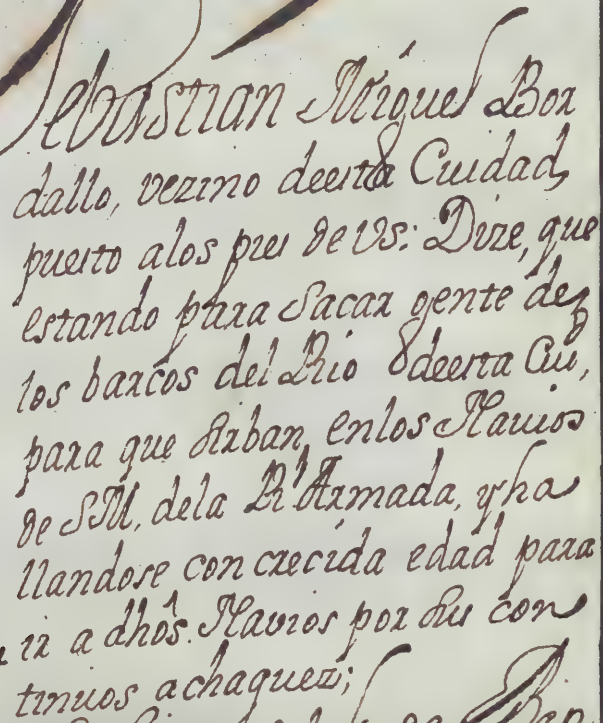 Sebastian Miguel Bor
dallo, vezino deesta Ciudad,
puesto alos pies de Vs: Dize, que
estando para Sacar gente de
los barcos del Rio deesta Ciu,
para que sirban, enlos Navios
de SM, dela Rl Armada, y ha
llandose con crecida edad para
ir a dhos. Navios por su con
tinuos achaquez;